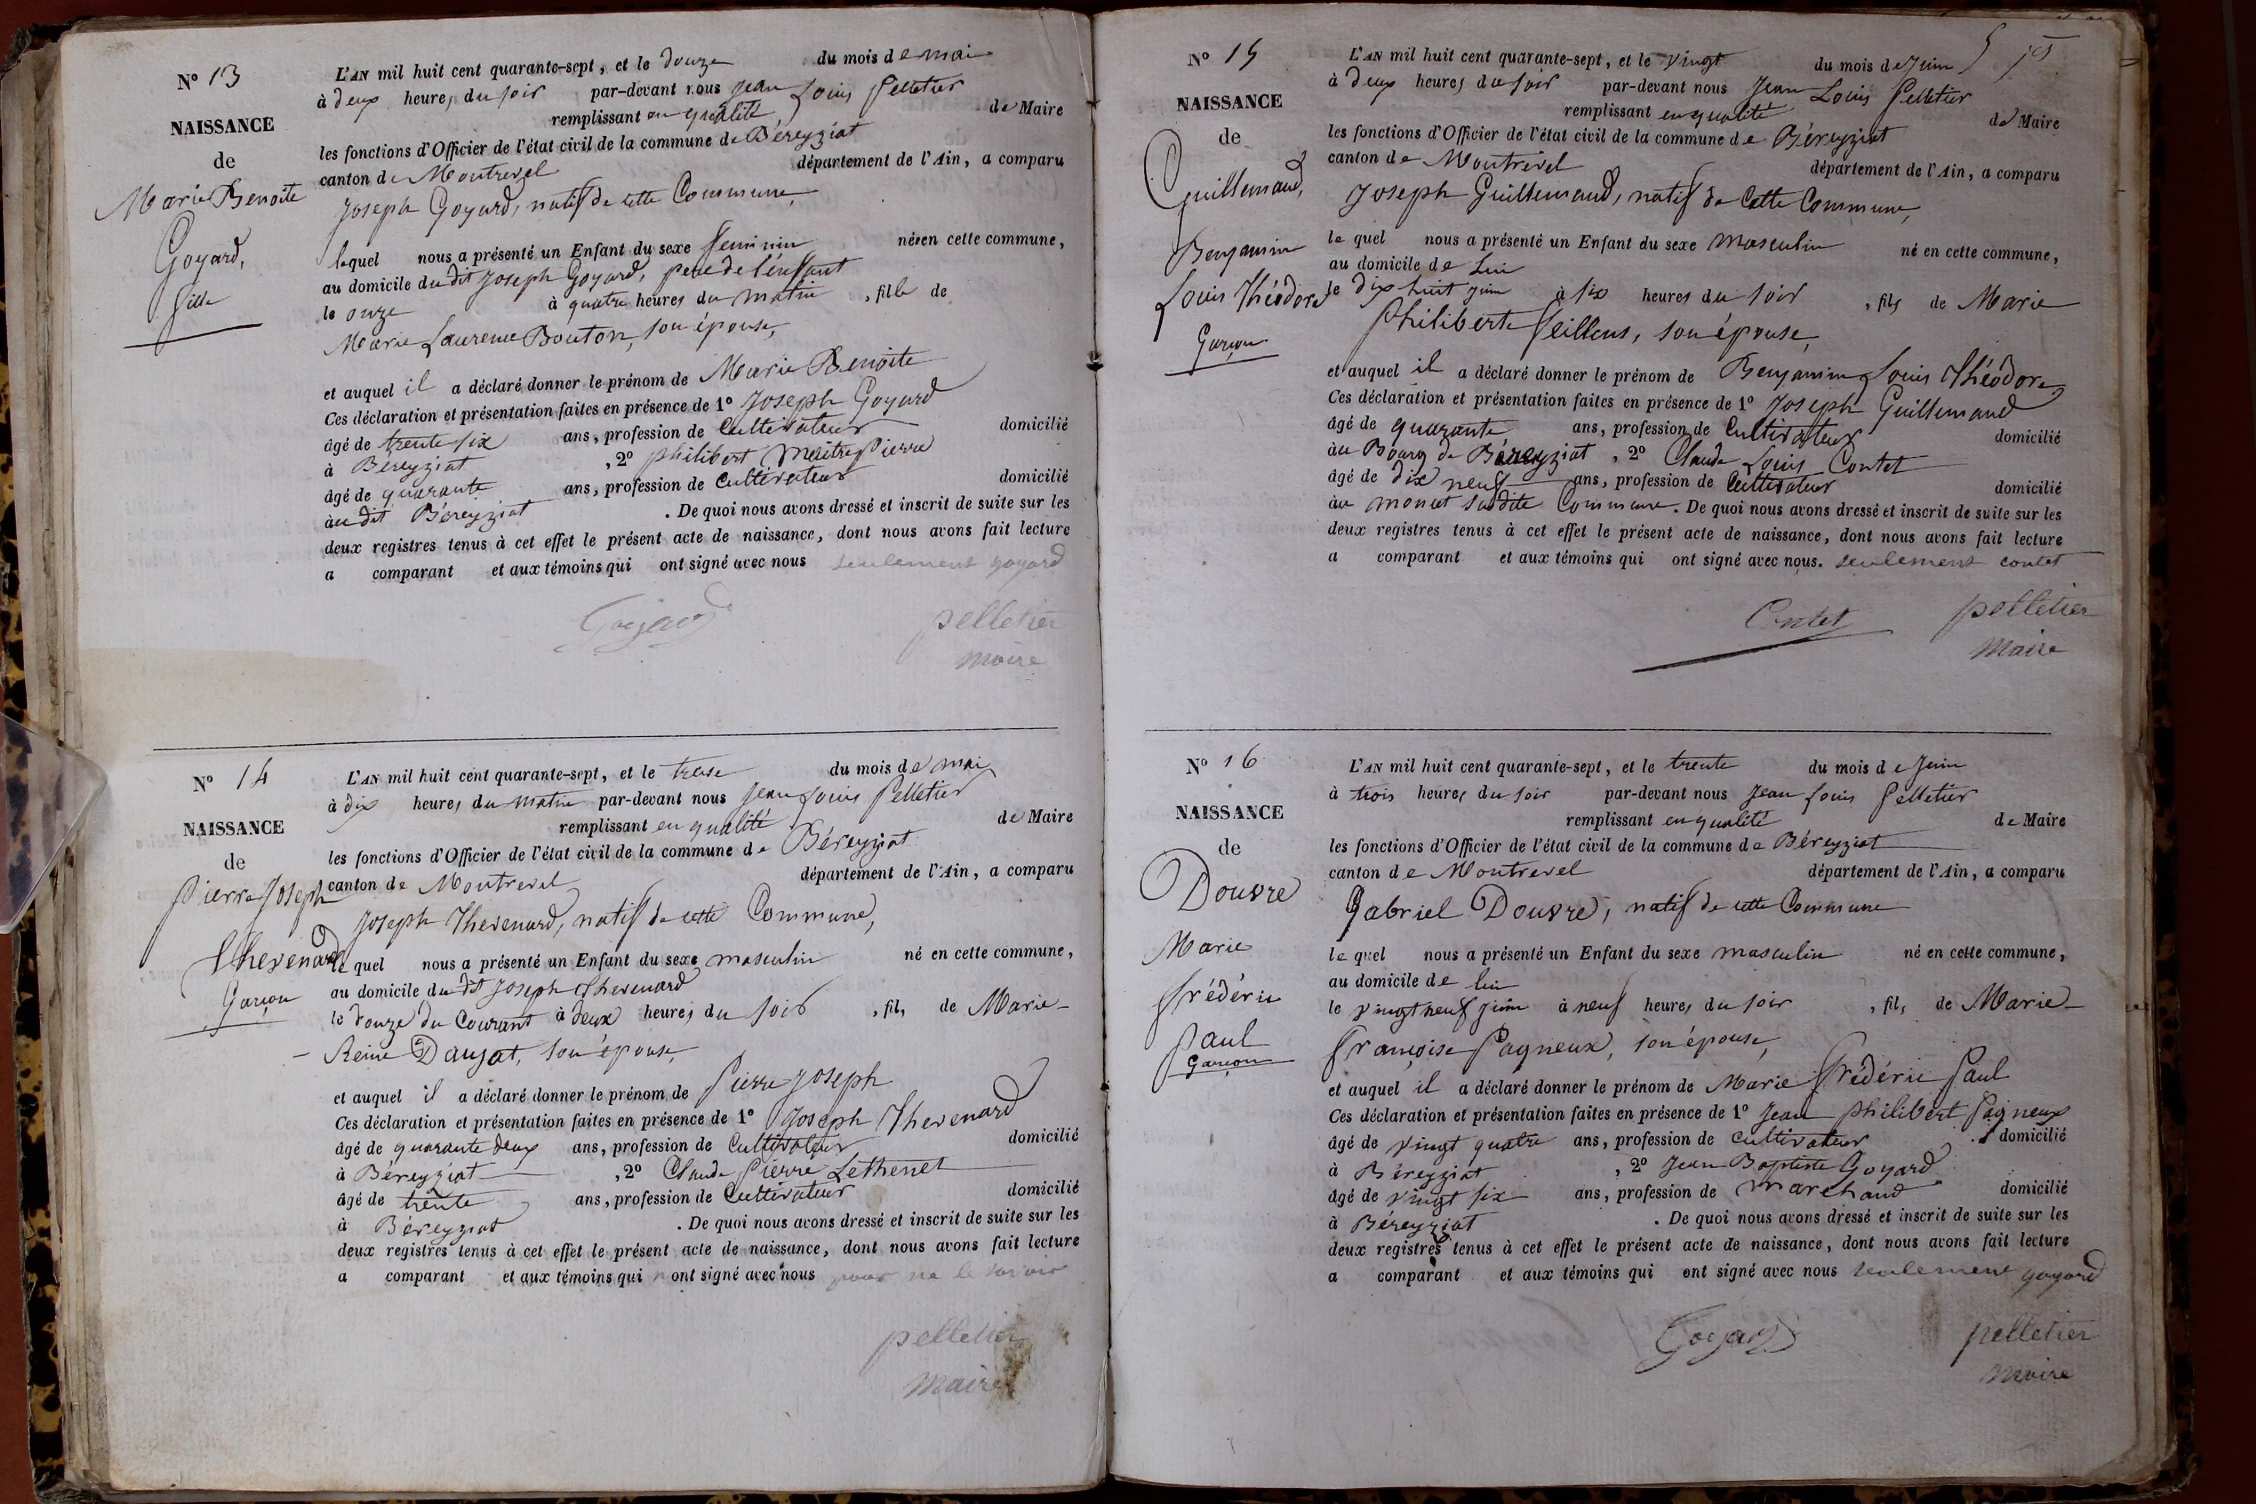 N° 13
NAISSANCE
de
Marie Benoite
Goyard,
fille
L'AN mil huit cent quarante-sept, et le douze du mois de mai
à deux heures du soir par-devant nous Jean Louis Pelletier
remplissant en qualité de Maire
les fonctions d'Officier de l'état civil de la commune de Béreyziat
canton de Montrevel département de l'Ain, a comparu
Joseph Goyard, natif de cette Commune,
lequel nous a présenté un Enfant du sexe feminin née en cette commune,
au domicile du dit Joseph Goyard, père de l'enfant
le onze à quatre heures du matin, fille de
Marie Laurence Bouton, son épouse,
et auquel il a déclaré donner le prénom de Marie Benoite
Ces déclaration et présentation faites en présence de 1° Joseph Goyard
âgé de trente six ans, profession de Cultivateur domicilié
à Béreyziat, 2° philibert Maitre Pierre
âgé de quarante ans, profession de Cultivateur domicilié
au dit Béreyziat. De quoi nous avons dressé et inscrit de suite sur les
deux registres tenus à cet effet le présent acte de naissance, dont nous avons fait lecture
a comparant et aux témoins qui ont signé avec nous seulement goyard
Goyard pelletier
maire
N° 14
NAISSANCE
de
Pierre Joseph
Thevenard
Garçon
L'AN mil huit cent quarante-sept, et le treize du mois de mai
à dix heures du matin par-devant nous Jean Louis Pelletier
remplissant en qualité de Maire
les fonctions d'Officier de l'état civil de la commune de Béreyziat
canton de Montrevel département de l'Ain, a comparu
Joseph Thevenard, natif de cette Commune,
lequel nous a présenté un Enfant du sexe masculin né en cette commune,
au domicile du dit Joseph Thevenard
le douze du Courant à deux heures du soir, fils de Marie-
- Reine Daujat, son épouse,
et auquel il a déclaré donner le prénom de Pierre Joseph
Ces déclaration et présentation faites en présence de 1° Joseph Thevenard
âgé de quarante deux ans, profession de Cultivateur domicilié
à Béreyziat, 2° Claude Pierre Lethenet
âgé de trente ans, profession de Cultivateur domicilié
à Béreyziat. De quoi nous avons dressé et inscrit de suite sur les
deux registres tenus à cet effet le présent acte de naissance, dont nous avons fait lecture
a comparant et aux témoins qui n ont signé avec nous pour ne le savoir
pelletier
maire
N° 15
NAISSANCE
de
Guillemaud,
Benjamin
Louis Théodore
Garçon
L'AN mil huit cent quarante-sept, et le vingt du mois de Juin
à deux heures du soir par-devant nous Jean Louis Pelletier
remplissant en qualité de Maire
les fonctions d'Officier de l'état civil de la commune de Béreyziat
canton de Montrevel département de l'Ain, a comparu
Joseph Guillemaud, natif de Cette Commune,
le quel nous a présenté un Enfant du sexe masculin né en cette commune,
au domicile de lui
le dix huit juin à six heures du soir, fils de Marie
Philiberte Feillens, son épouse,
et auquel il a déclaré donner le prénom de Benjamin Louis Théodore
Ces déclaration et présentation faites en présence de 1° Joseph Guillemaud
âgé de quarante ans, profession de Cultivateur domicilié
au Bourg de Béreyziat, 2° Claude Louis Contet
âgé de dix neuf ans, profession de Cultivateur domicilié
au moncet susdite Commune. De quoi nous avons dressé et inscrit de suite sur les
deux registres tenus à cet effet le présent acte de naissance, dont nous avons fait lecture
a comparant et aux témoins qui ont signé avec nous. seulement contet
Contet pelletier
maire
N° 16
NAISSANCE
de
Douvre
Marie
Frédéric
Paul
Garçon
L'AN mil huit cent quarante-sept, et le trente du mois de Juin
à trois heures du soir par-devant nous Jean Louis Pelletier
remplissant en qualité de Maire
les fonctions d'Officier de l'état civil de la commune de Béreyziat
canton de Montrevel département de l'Ain, a comparu
Gabriel Douvre, natif de cette Commune
le quel nous a présenté un Enfant du sexe masculin né en cette commune,
au domicile de lui
le vingt neuf juin à neuf heures du soir, fils de Marie-
Françoise Pagneux, son épouse,
et auquel il a déclaré donner le prénom de Marie Frédéric Paul
Ces déclaration et présentation faites en présence de 1° Jean philibert Pagneux
âgé de vingt quatre ans, profession de cultivateur domicilié
à Béreyziat, 2° Jean Baptiste Goyard
âgé de vingt six ans, profession de marchand domicilié
à Béreyziat. De quoi nous avons dressé et inscrit de suite sur les
deux registres tenus à cet effet le présent acte de naissance, dont nous avons fait lecture
a comparant et aux témoins qui ont signé avec nous seulement goyard
Goyard pelletier
maire